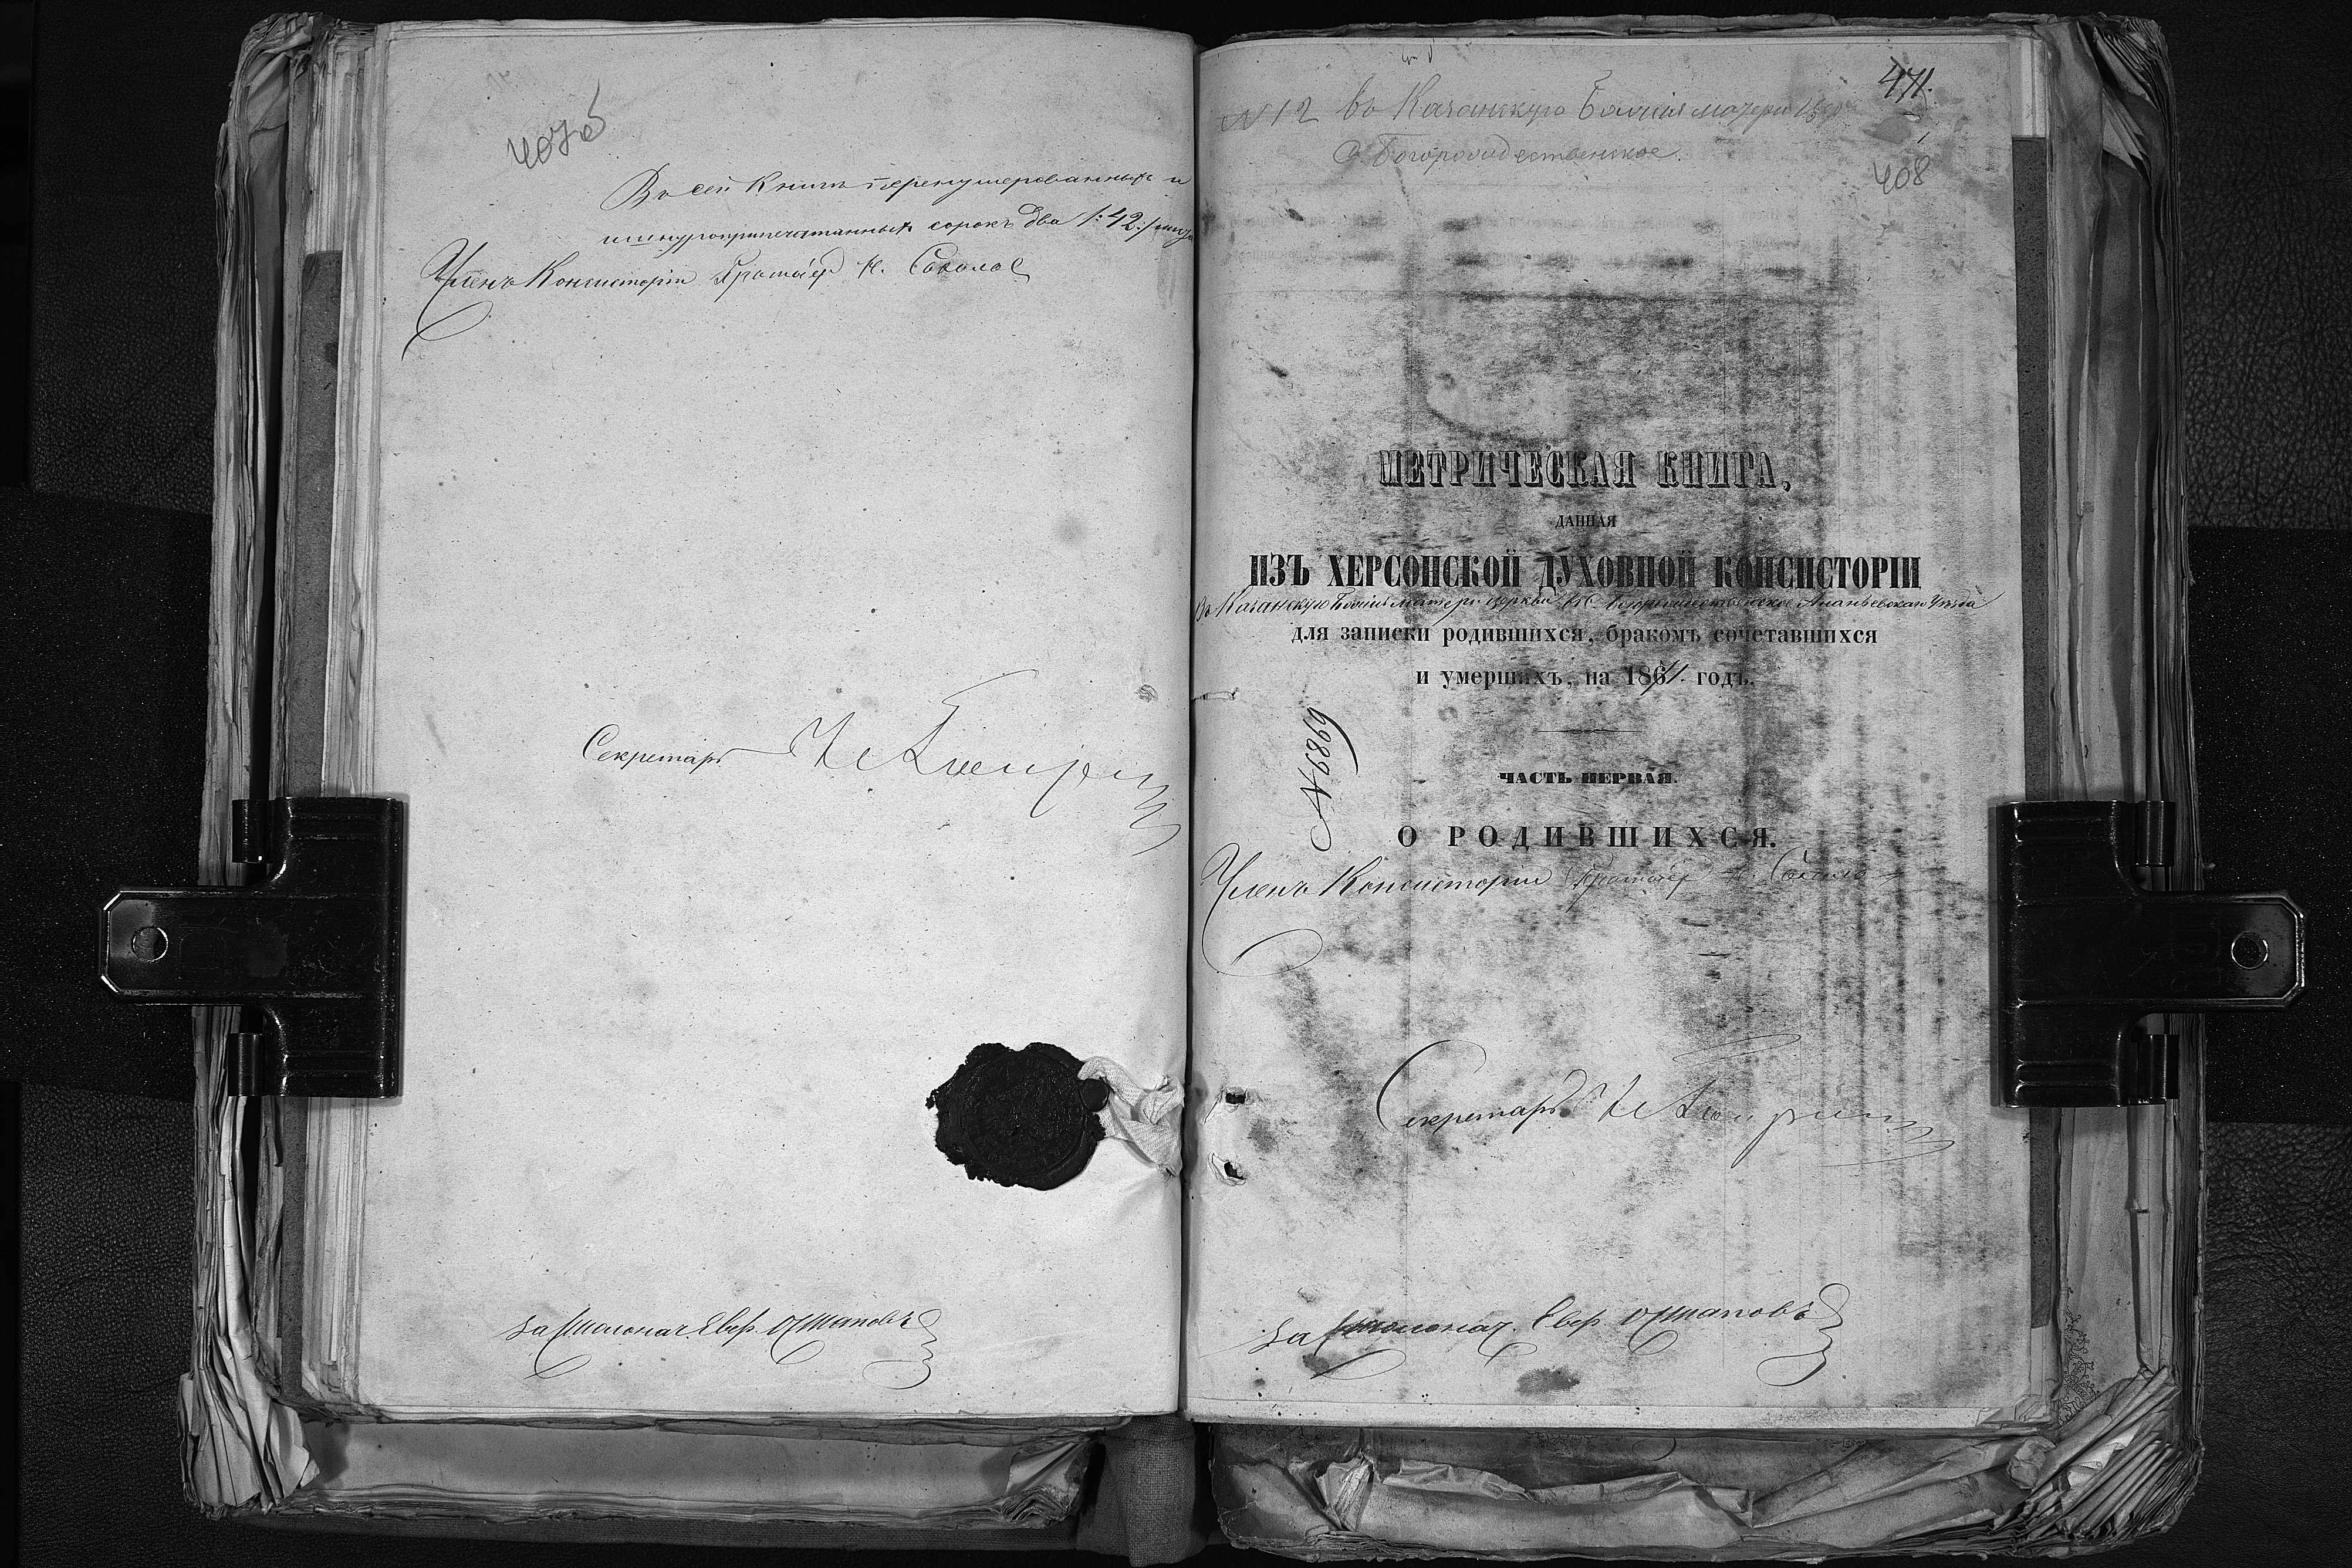 407об
Въ сей Книгѣ перенумерованныхъ и
шнуроприпечатанныхъ сорокъ два /:42:/ листа
Членъ Консисторіи Протоіер Н. Соколов
Секретарь
За Столонач. Евер. Осташовъ
471.
N 12 въ Казанскую Божіей матери Цер
С. Богорождественское.
408
МЕТРИЧЕСКАЯ КНИГА,
ДАННАЯ
ИЗЪ ХЕРСОНСКОЙ ДУХОВНОЙ КОНСИСТОРІИ
Въ Казанскую Божіей матери церковь въ С. Богорождественское Ананьевскаго Уѣзда
для записки родившихся, бракомъ сочетавшихся
и умершихъ, на 1861. годъ.
N 6869
ЧАСТЬ ПЕРВАЯ.
О РОДИВШИХСЯ.
Членъ Консисторіи Протоіер Н. Соколов
Секретарь
За Столонач. Евер Осташовъ